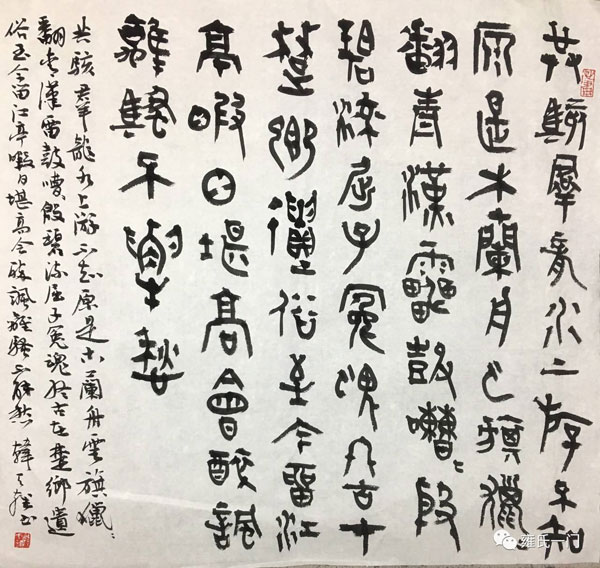 共駭羣龍水上游不知
原是木蘭舟雲旗獵〻
翻青漢靁鼓嘈〻殷
碧流屈子冤魂終古在
楚鄉遺俗至今留江
亭暇日堪高會醉諷
離騷不解愁
共駭羣龍水上游不知原是木蘭舟雲旗獵〻
翻青漢雷鼓嘈〻殷碧流屈子冤魂終古在楚鄉遺
俗至今留江亭暇日堪高会醉諷離騷不解愁 韓天雍书
雍氏一门